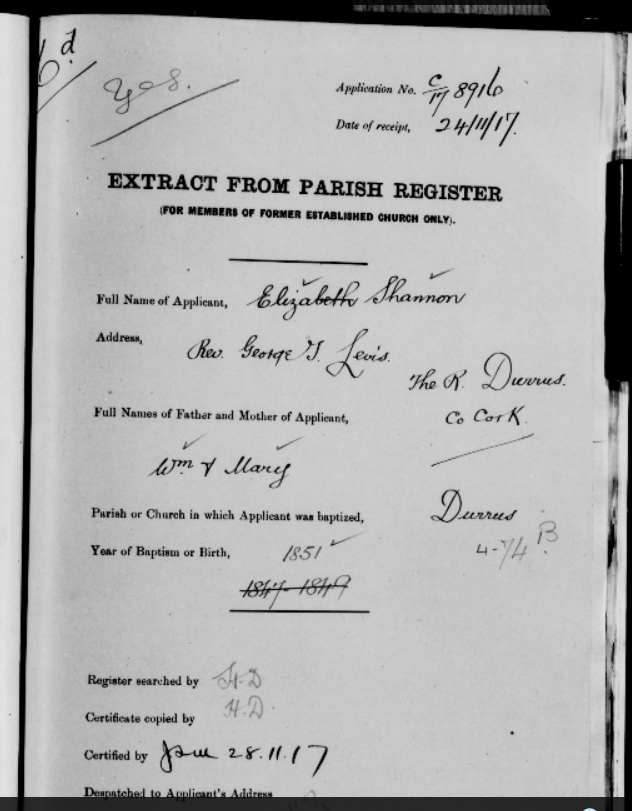 6d
Yes.
Application No. C/17 8916
Date of receipt, 24/11/17.
EXTRACT FROM PARISH REGISTER
(FOR MEMBERS OF FORMER ESTABLISHED CHURCH ONLY).
Full Name of Applicant, Elizabeth Shannon
Address,
Rev. George T. Levis.
The R. Durrus.
Full Names of Father and Mother of Applicant, Co Cork.
Wm & Mary
Parish or Church in which Applicant was baptized, Durrus
Year of Baptism or Birth, 1851
4-74 B
1847-1849
Register searched by H.D
Certificate copied by H.D.
Certified by 28.11.17
Despatched to Applicant's Address